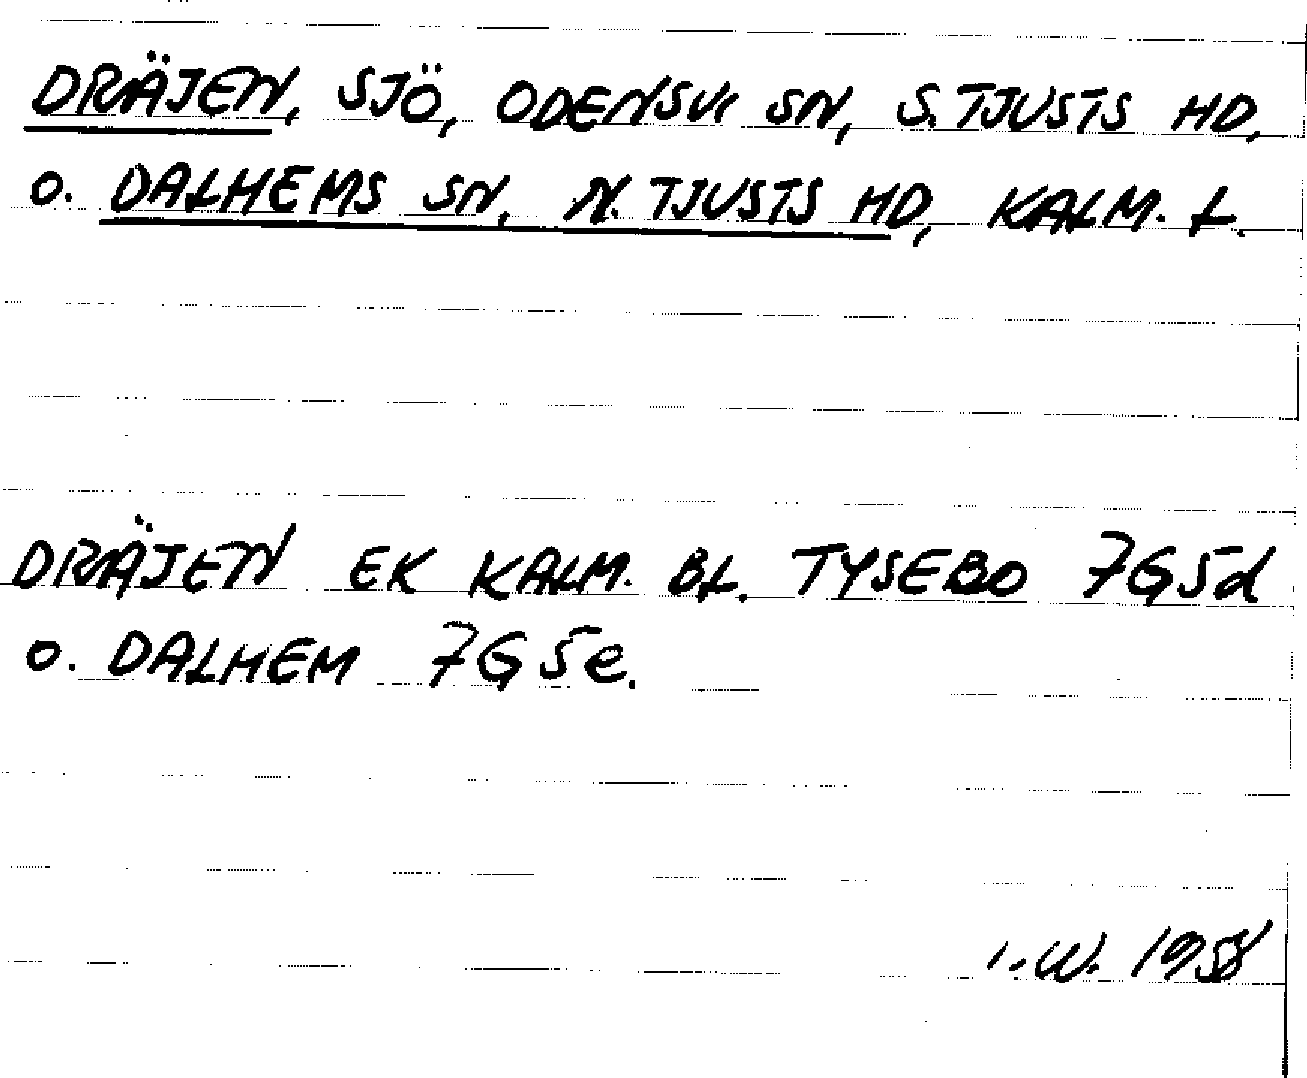 DRÄJEN, SJÖ, ODENSVI SN, S. TJUSTS HD,
o. DALHEMS SN, N. TJUSTS HD, KALM. L.
DRÄJEN EK KALM. BL. TYSEBO 7G5d
o. DALHEM 7G5e.
I.W. 1958